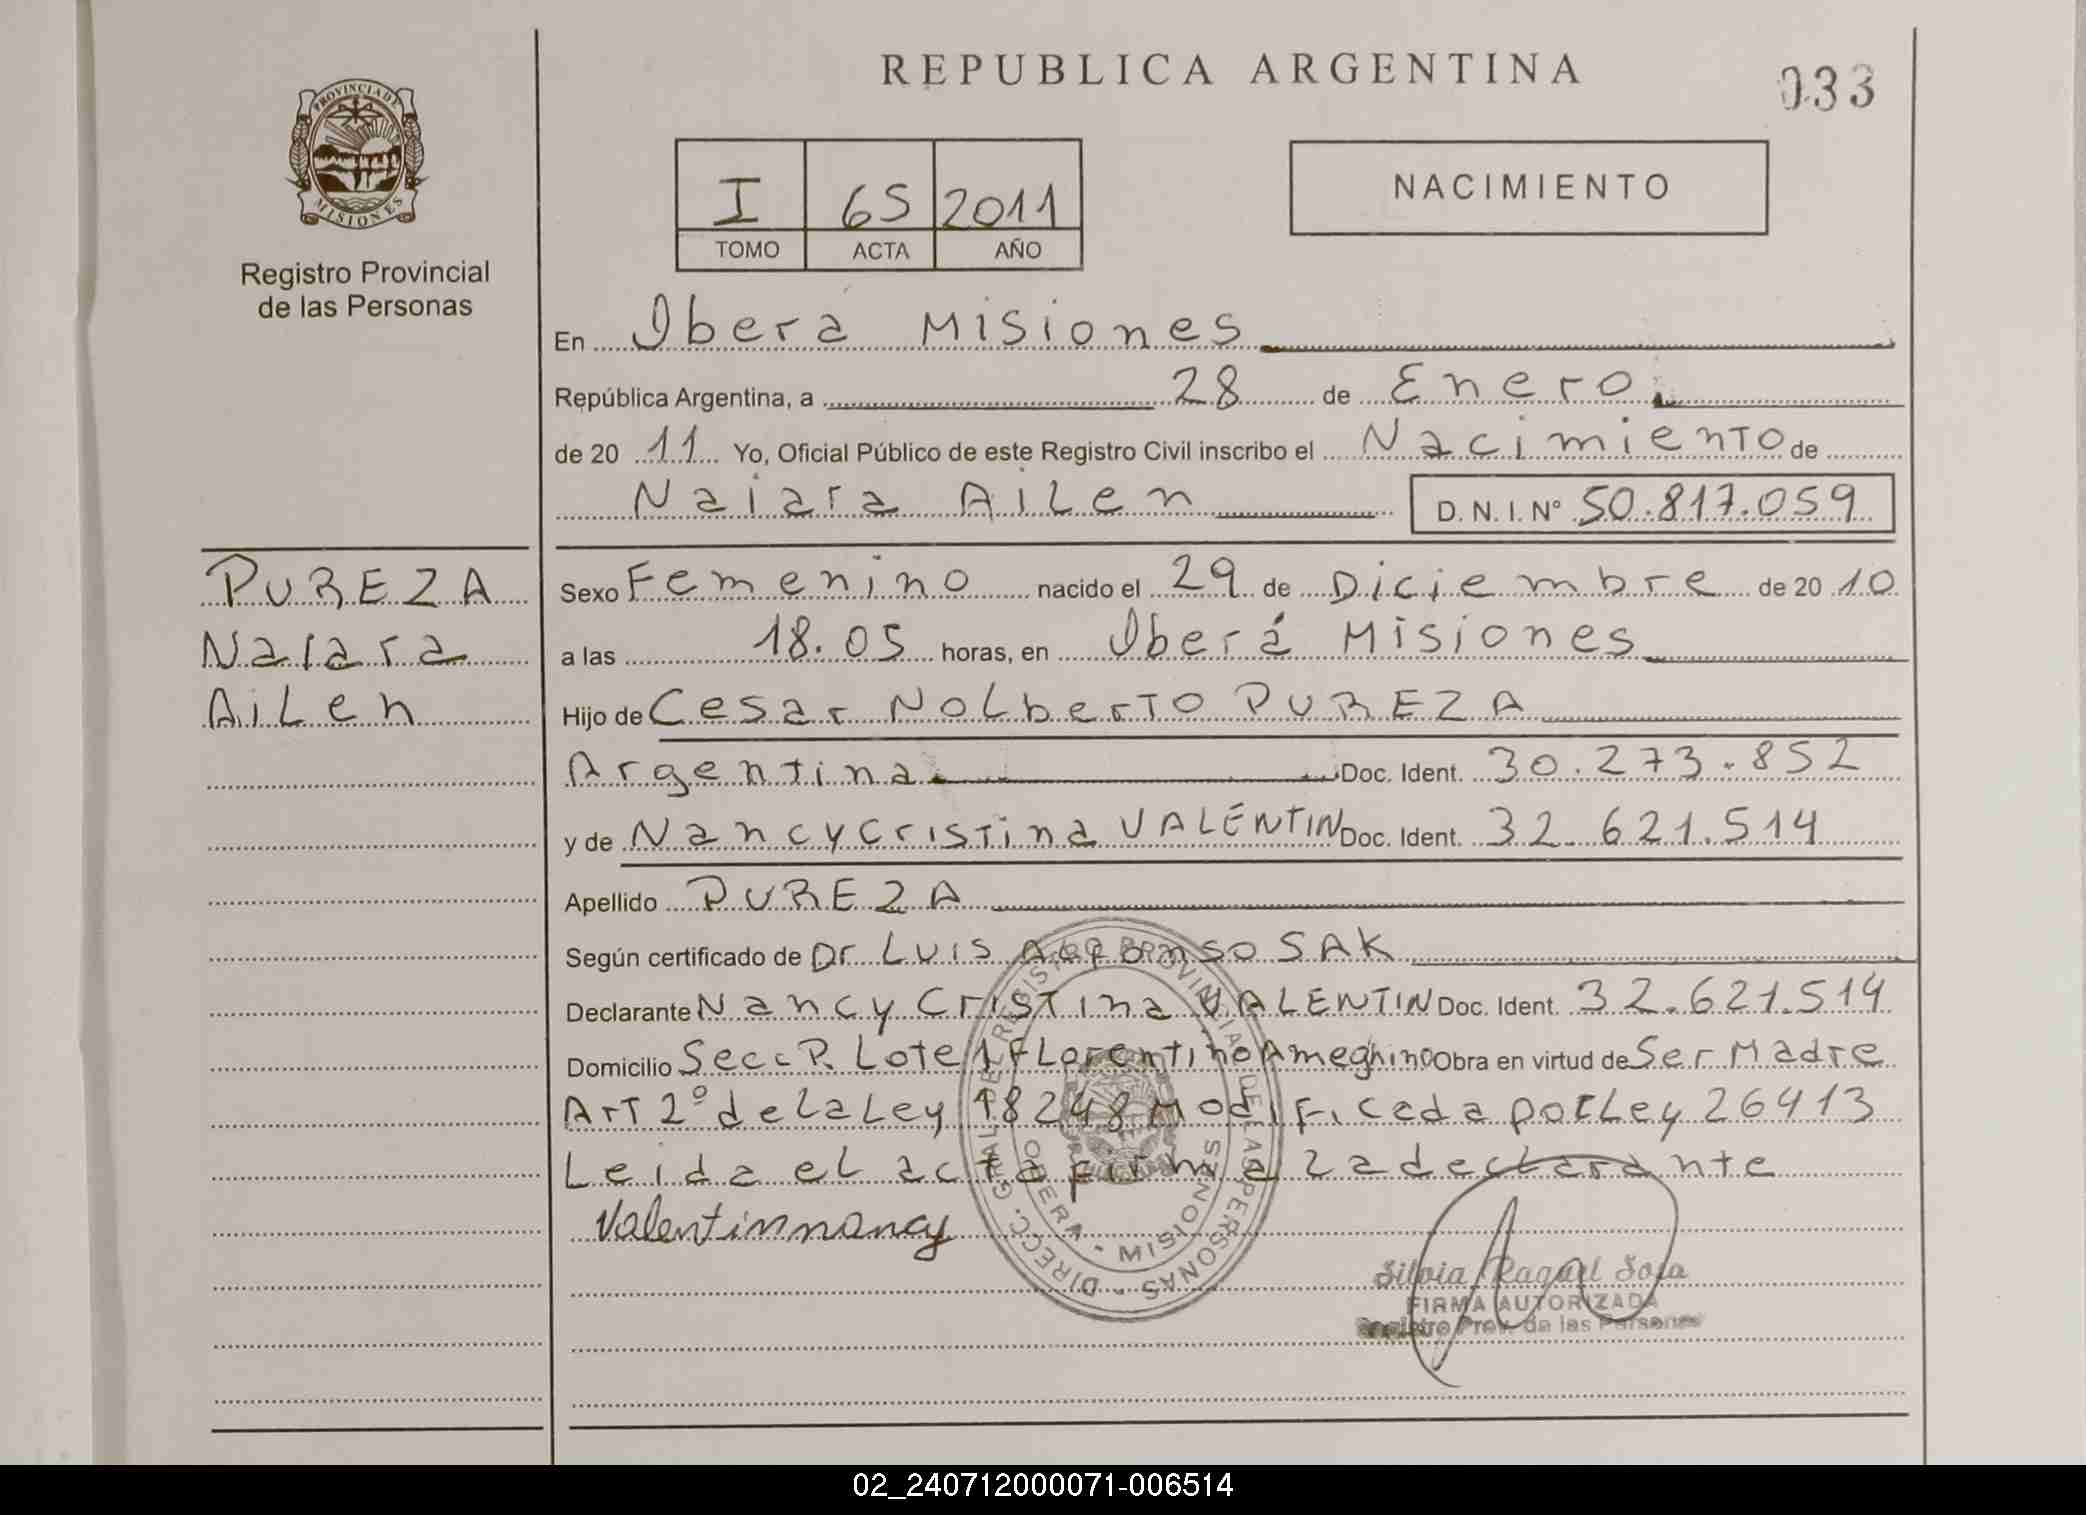 REPUBLICA ARGENTINA
033
PROVINCIA DE
MISIONES
Registro Provincial
de las Personas
I 65 2011
TOMO ACTA AÑO
NACIMIENTO
En Iberá Misiones
República Argentina, a 28 de Enero
de 20 11 Yo, Oficial Público de este Registro Civil inscribo el Nacimiento de
Naiara Ailen D. N. I. Nº 50.817.059
PUREZA
Naiara
Ailen
Sexo Femenino nacido el 29 de Diciembre de 20 10
a las 18.05 horas, en Iberá Misiones
Hijo de Cesar Nolberto PUREZA
Argentina Doc. Ident. 30.273.852
y de Nancy Cristina VALENTIN Doc. Ident. 32.621.514
Apellido PUREZA
Según certificado de Dr Luis Alfonso SAK
Declarante Nancy Cristina VALENTIN Doc. Ident. 32.621.514
Domicilio Secc P. Lote 1 Florentino Ameghino Obra en virtud de Ser Madre
Art 2º de la Ley 18248 Modificada por Ley 26413
Leida el acta firma la declarante
Valentin nancy
DIRECC. GRAL. DEL REGISTRO PROVINCIAL DE LAS PERSONAS
OBERA - MISIONES
Silvia Raquel Sosa
FIRMA AUTORIZADA
Registro Prov. de las Personas
02_240712000071-006514